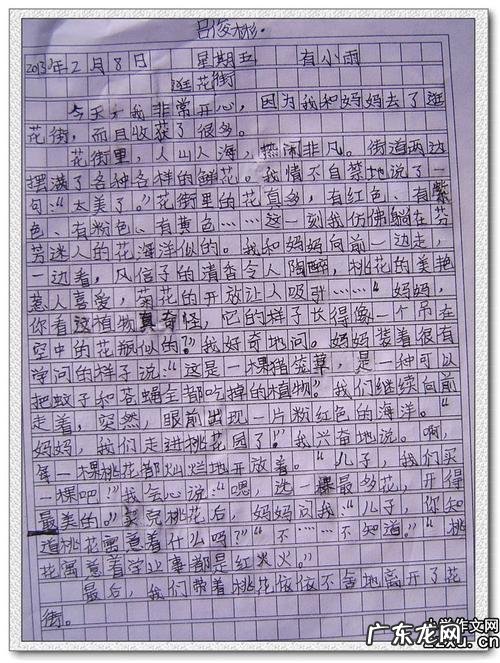 吕俊彬.
2013年2月8日 星期五 有小雨
逛花街
今天,我非常开心,因为我和妈妈去了逛
花街,而且收获了很多。
花街里,人山人海,热闹非凡。街道两边
摆满了各种各样的鲜花。我情不自禁地说了一
句:“太美了。”花街里的花真多,有红色、有紫
色、有粉色、有黄色……这一刻我仿佛躺在芬
芳迷人的花海洋似的。我和妈妈向前一边走,
一边看,风信子的清香令人陶醉,桃花的美艳
惹人喜爱,菊花的开放让人吸引……“妈妈,
你看这植物真奇怪,它的样子长得像一个吊在
空中的花瓶似的?”我好奇地问。妈妈装着很有
学问的样子说:“这是一棵猪笼草,是一种可以
把蚊子和苍蝇全都吃掉的植物。”我们继续向前
走着,突然,眼前出现一片粉红色的海洋。“
妈妈,我们走进桃花园了!”我兴奋地说。啊,
每一棵桃花都灿烂地开放着。“儿子,我们买
一棵吧!”我会心说:“嗯,选一棵最多花,开得
最美的。”买完桃花后,妈妈问我:“儿子,你知
道桃花寓意着什么吗?”“不……不知道。”“桃
花寓意着学让事都是红火火。”
最后,我们带着桃花依依不舍地离开了花
街。
小学作文网
广东龙网